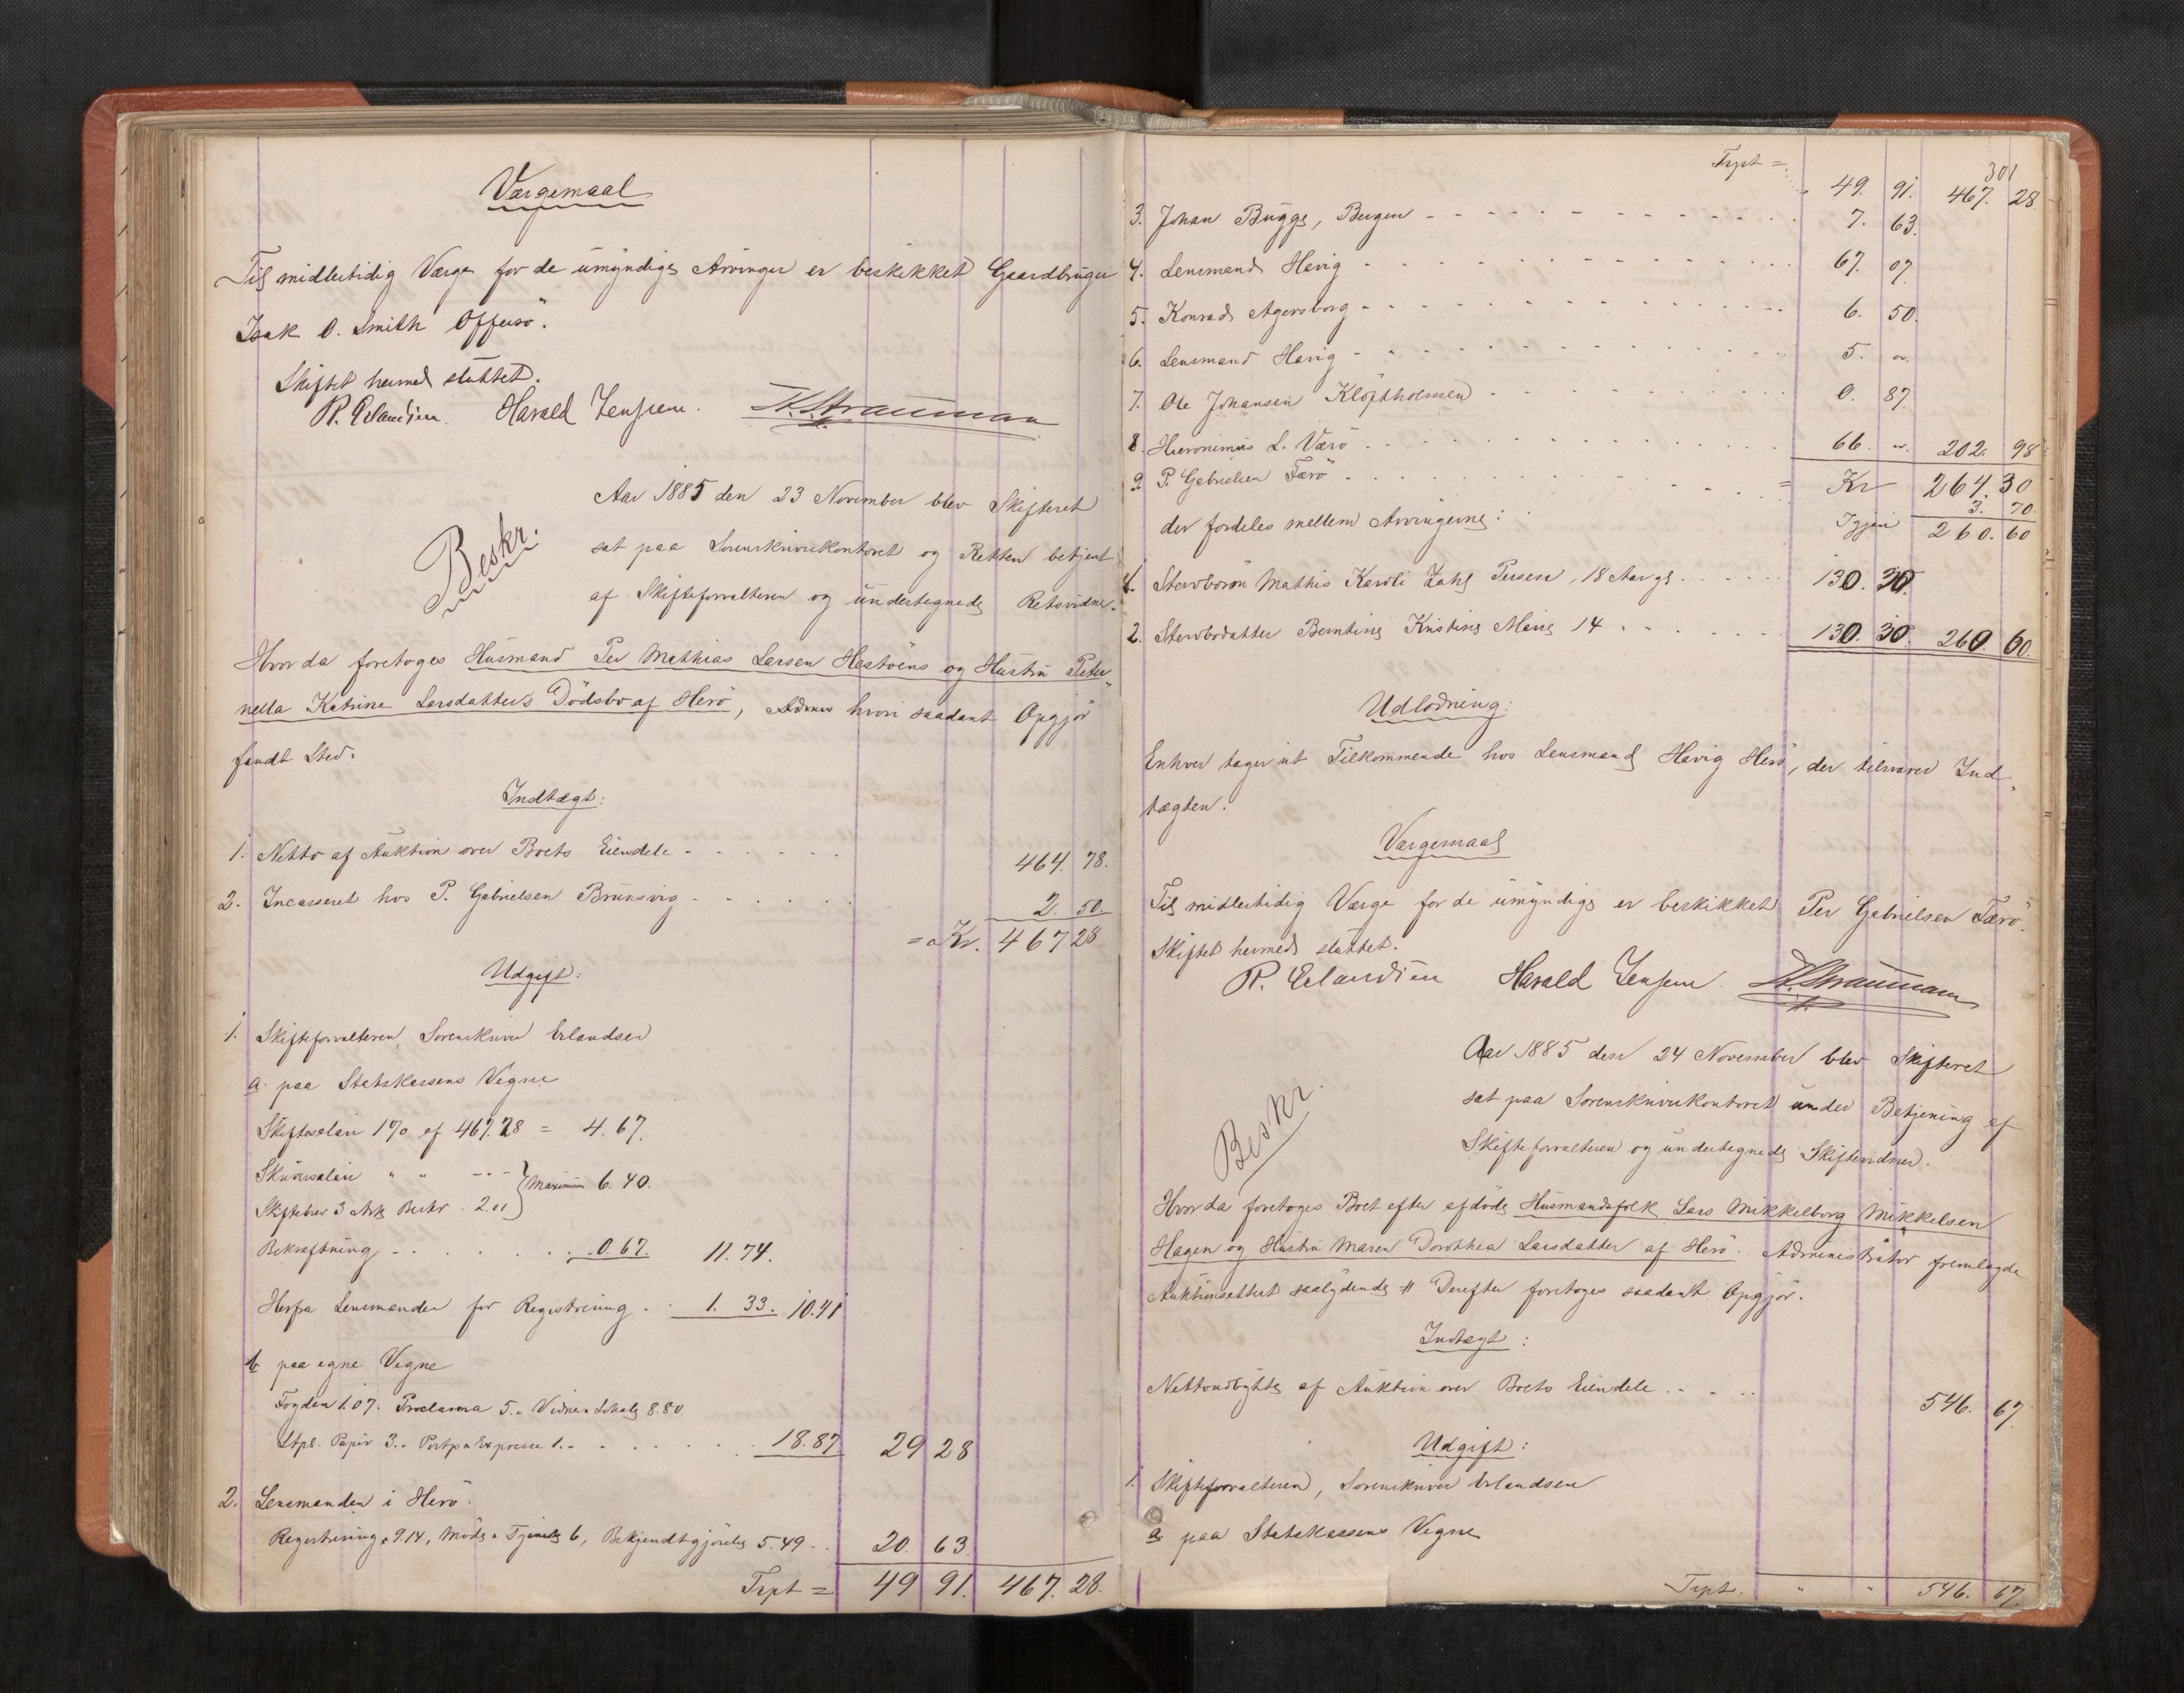 Værgemaal
Til midlertidig Værge for de umyndige Arvinger er beskikket Gaardbruger
Isak O. Smith Offersö.
Skiftet hermed sluttet.
R. Erlandsen. Harald Jensen. H. Straumann
Aar 1885 den 23 November blev Skifteret
Beskr.
sat paa Sorenskriverkontoret og Retten betjent
af Skifteforvalteren og undertegnede Retsvidner.
Hvor da foretoges Husmand Per Mathias Larsen Hestöens og Hustru Peter„
nella Katrine Larsdatters Dödsbo af Herö, hvori saadant Opgjör
fandt Sted.
Indtægt:
1. Netto af Auktion over Boets Eiendele - - - - - - 464. 78.
2. Incasseret hos P. Gabrielsen Brunsvig - - - - - 2. 50.
= Kr. 467 28
Udgift:
1. Skifteforvalteren, Sorenskriver Erlandsen
a. paa Statskassens Vegne
Skiftesalær 1% af 467.28 = 4.67.
Skriversalær " " --- } Maximum 6.40.
Skiftebrev 3 Ark Beskr. 2.01
Bekræftning - . . . . . 0.67. 11.74.
Herfra Lensmanden for Registrering . . 1. 33. 10.41
b paa egne Vegne
Fogden 1.07. Proclama 5.. Vidner Lokale 8.80
Stpl. Papir 3.. Porto Expresse 1.- . . . . . . 18.87 29 28
2. Lensmanden i Herö.
Registrering 9.14, Möde Tjeneste 6, Bekjendtgjörelse 5.49 . . 20. 63.
Trpt = 49 91. 467. 28.
301
Trpt = 49. 91. 467. 28
3. Johan Bügge, Bergen - - - - - - - 7. 63.
4. Lensmand Havig - - - - - - - 67. 07
5. Konrad Agersborg - - - - - - - 6. 50.
6. Lensmand Havig - - - - - - - 5. "
7. Ole Johansen Klöftholmen - - - - - - 0. 87.
8. Hieronimus L. Værö . . . . . . 66. " 202. 98
9 P. Gabrielsen Færö . . . . . . = Kr 264.30
3. 70.
der fordeles mellem Arvingerne: Igjen 260.60
1. Stervbosön Mathis Karoli Zahl Persen, 18 Aar gl. . . . . 130. 30.
2. Stervbodatter Berntine Kristine Marie 14 . . . . . . 130. 30. 260. 60.
Udlodning:
Enhver tager sit Tilkommende hos Lensmand Havig Herö, der tilsvarer Ind„
tægten.
Værgemaal
Til midlertidig Værge for de umyndige er beskikket Per Gabrielsen Færö.
Skiftet hermed sluttet.
R. Erlandsen Harald Jensen. H. Straumann
Aar 1885 den 24 November blev Skifteret
Beskr.
sat paa Sorenskriverkontoret under Betjening af
Skifteforvalteren og undertegnede Skiftevidner.
Hvor da foretoges Boet efter afdöde Husmandsfolk Lars Mikkelborg Mikkelsen
Hagen og Hustru Maren Dorothea Larsdatter af Herö. Administrator fremlagde
Auktionsattest saalydende # Derefter foretoges saadant Opgjör.
Indtægt:
Nettoudbytte af Auktion over Boets Eiendele . . . . 546. 67.
Udgift:
1. Skifteforvalteren, Sorenskriver Erlandsen
a paa Statskassens Vegne
Trpt. " " 546. 67.